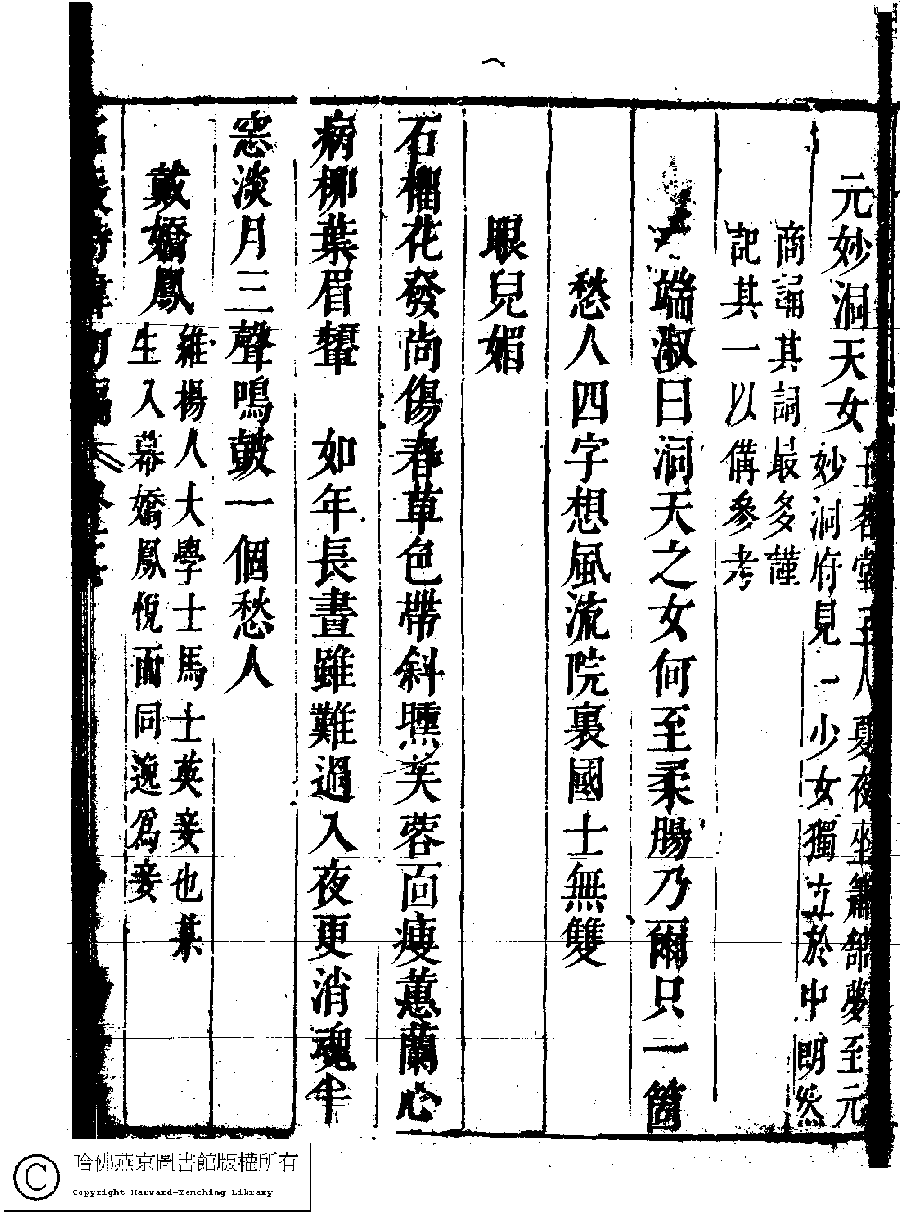 元妙洞天女
五人夏夜坐簫館夢至元
妙洞府見一少女獨立於中朗然
商誦其詞最多謹
記其一以備參考
端淑曰洞天之女何至柔腸乃爾只一箇
愁人四字想風流院裏國士無雙
眼兒媚
石榴花發尚傷春草色帶斜曛芙蓉面瘦蕙蘭心
病柳葉眉顰 如年長晝雖難過入夜更消魂半
窓淡月三聲鳴鼓一個愁人
戴嬌鳳
維楊人大學士馬士英妾也某
生入幕嬌鳳悅而同逸爲妾
名媛詩緯初編
哈佛燕京圖書館版權所有
Copyright Harvard-Yenching Library